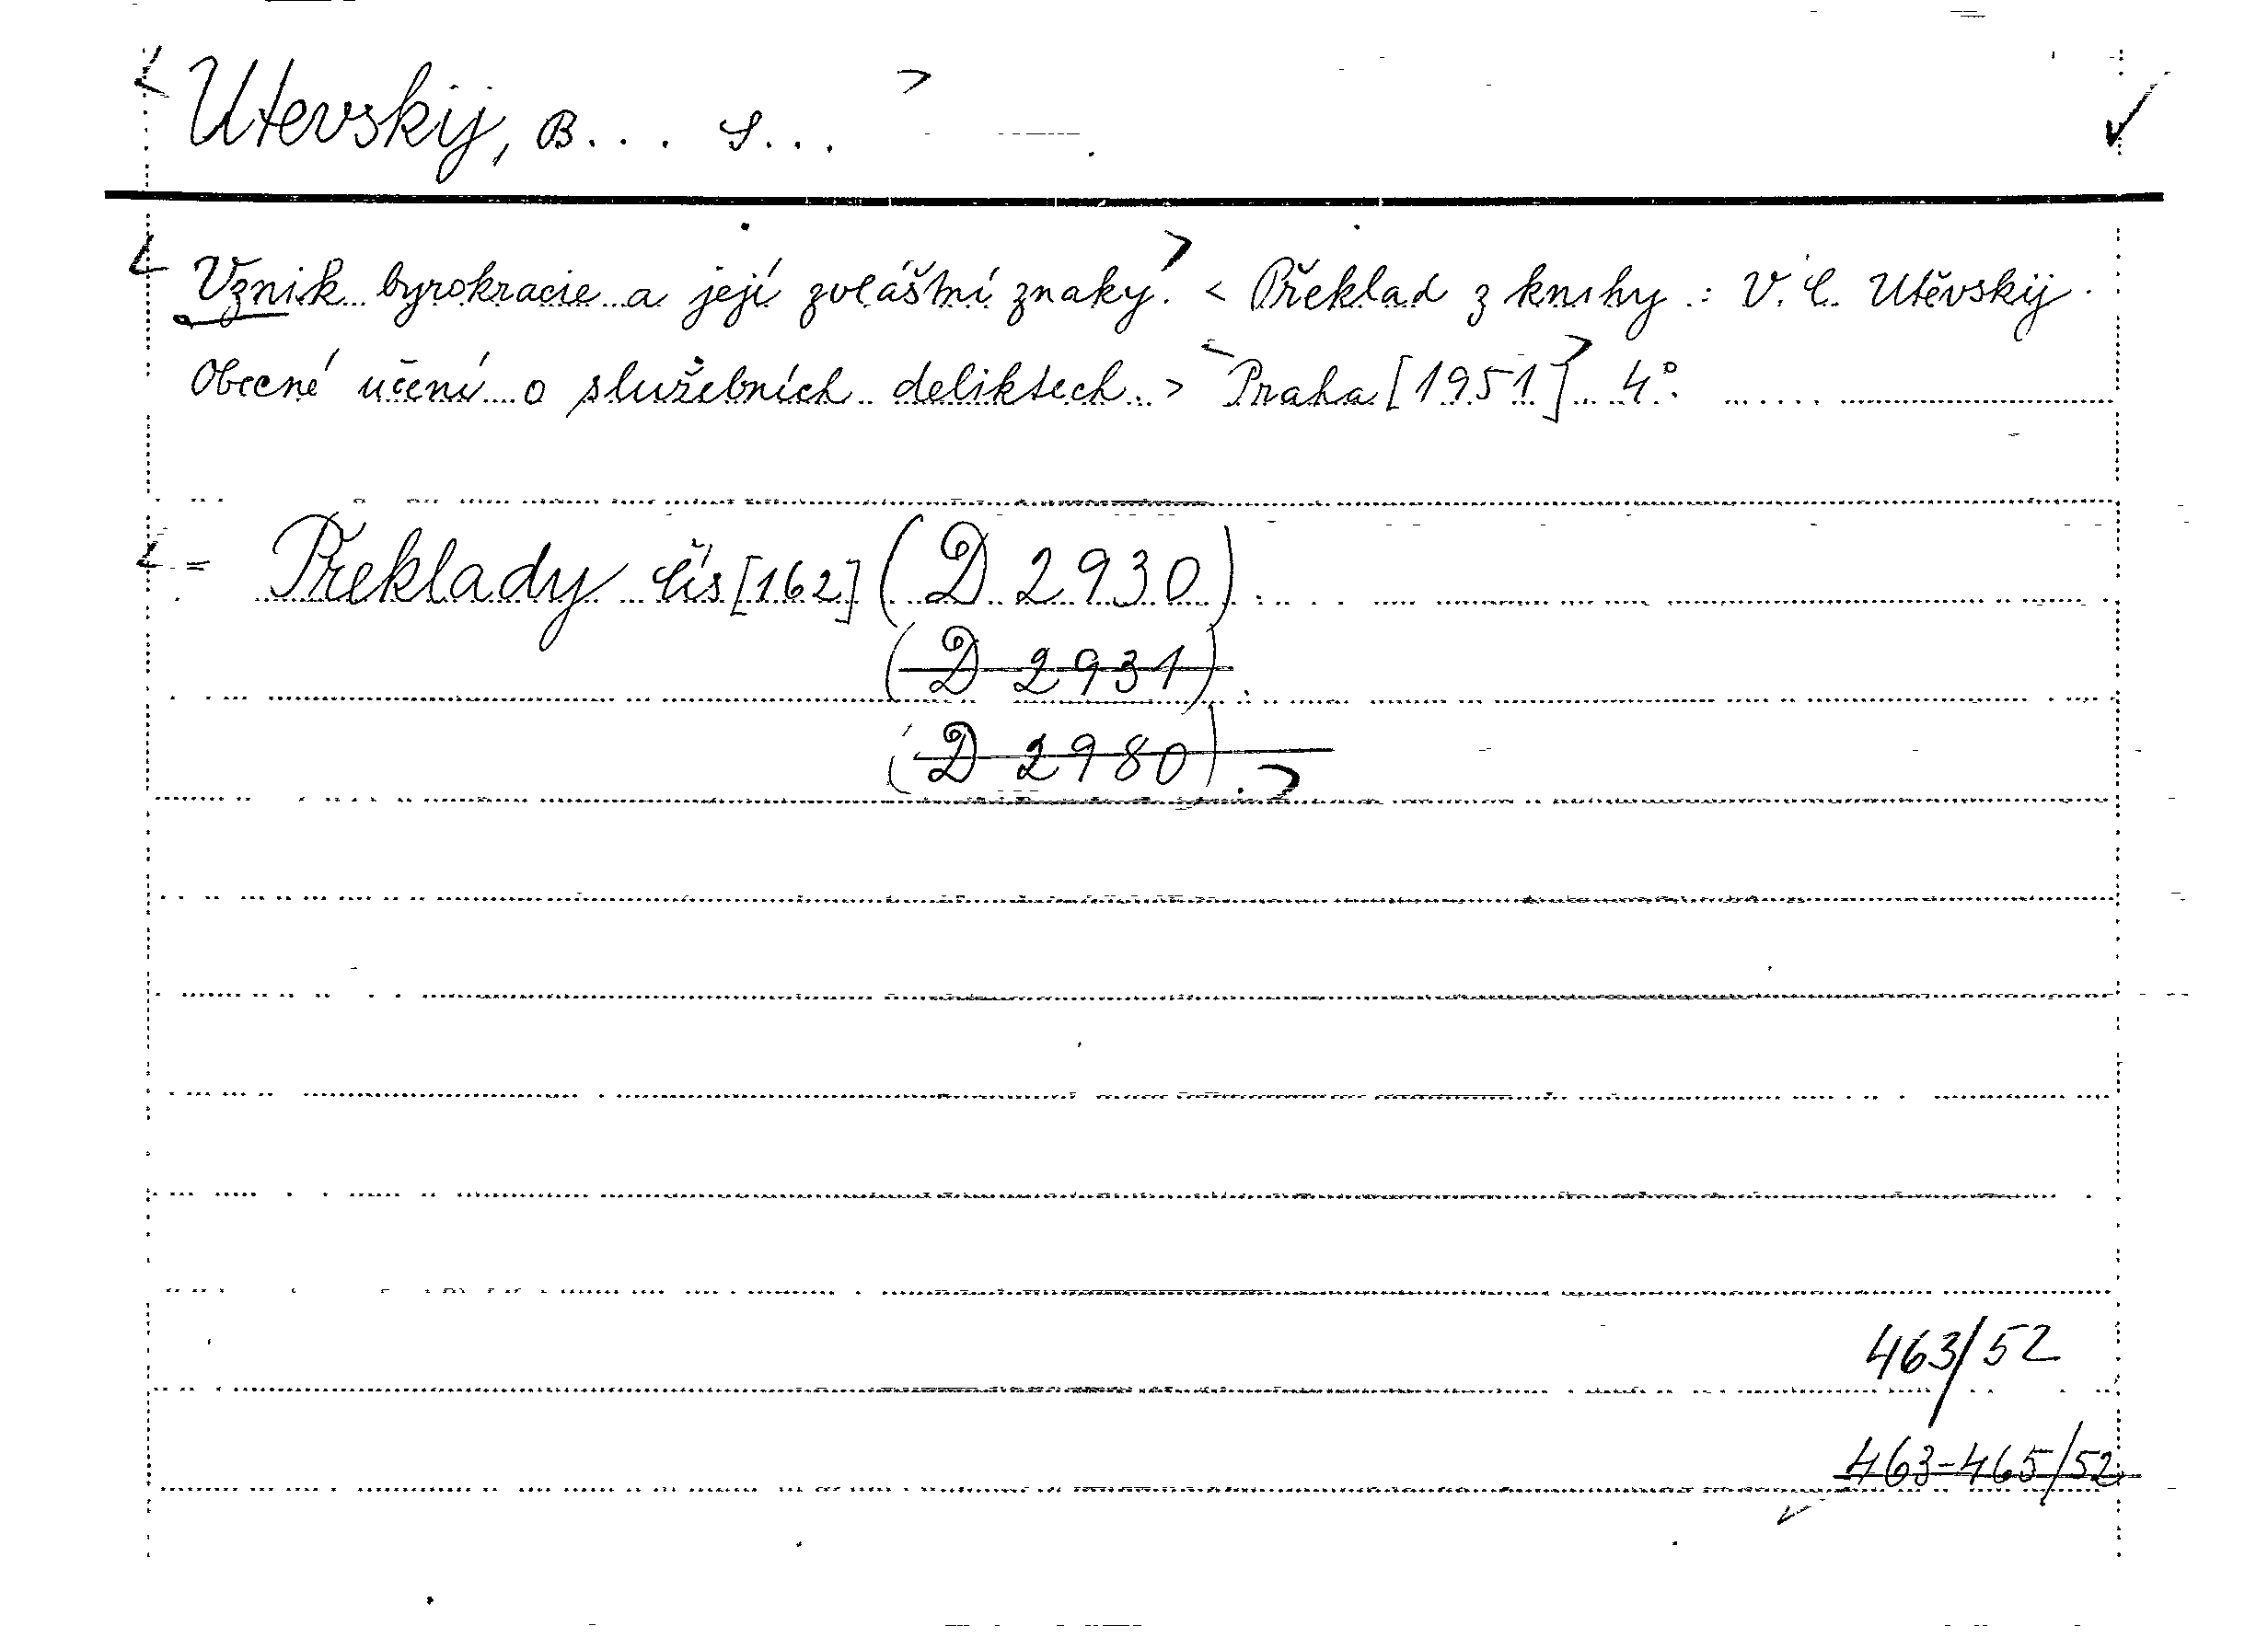 < Utevskij, B... S... >
< Vznik byrokracie a její zvláštní znaky. > < Překlad z knihy: V. C. Utěvskij
Obecné učení o služebních deliktech. > < Praha [1951] > 4°.
< = Překlady čís [162] (D 2930)
(D 2931)
(D 2980). >
463/52
463-465/52